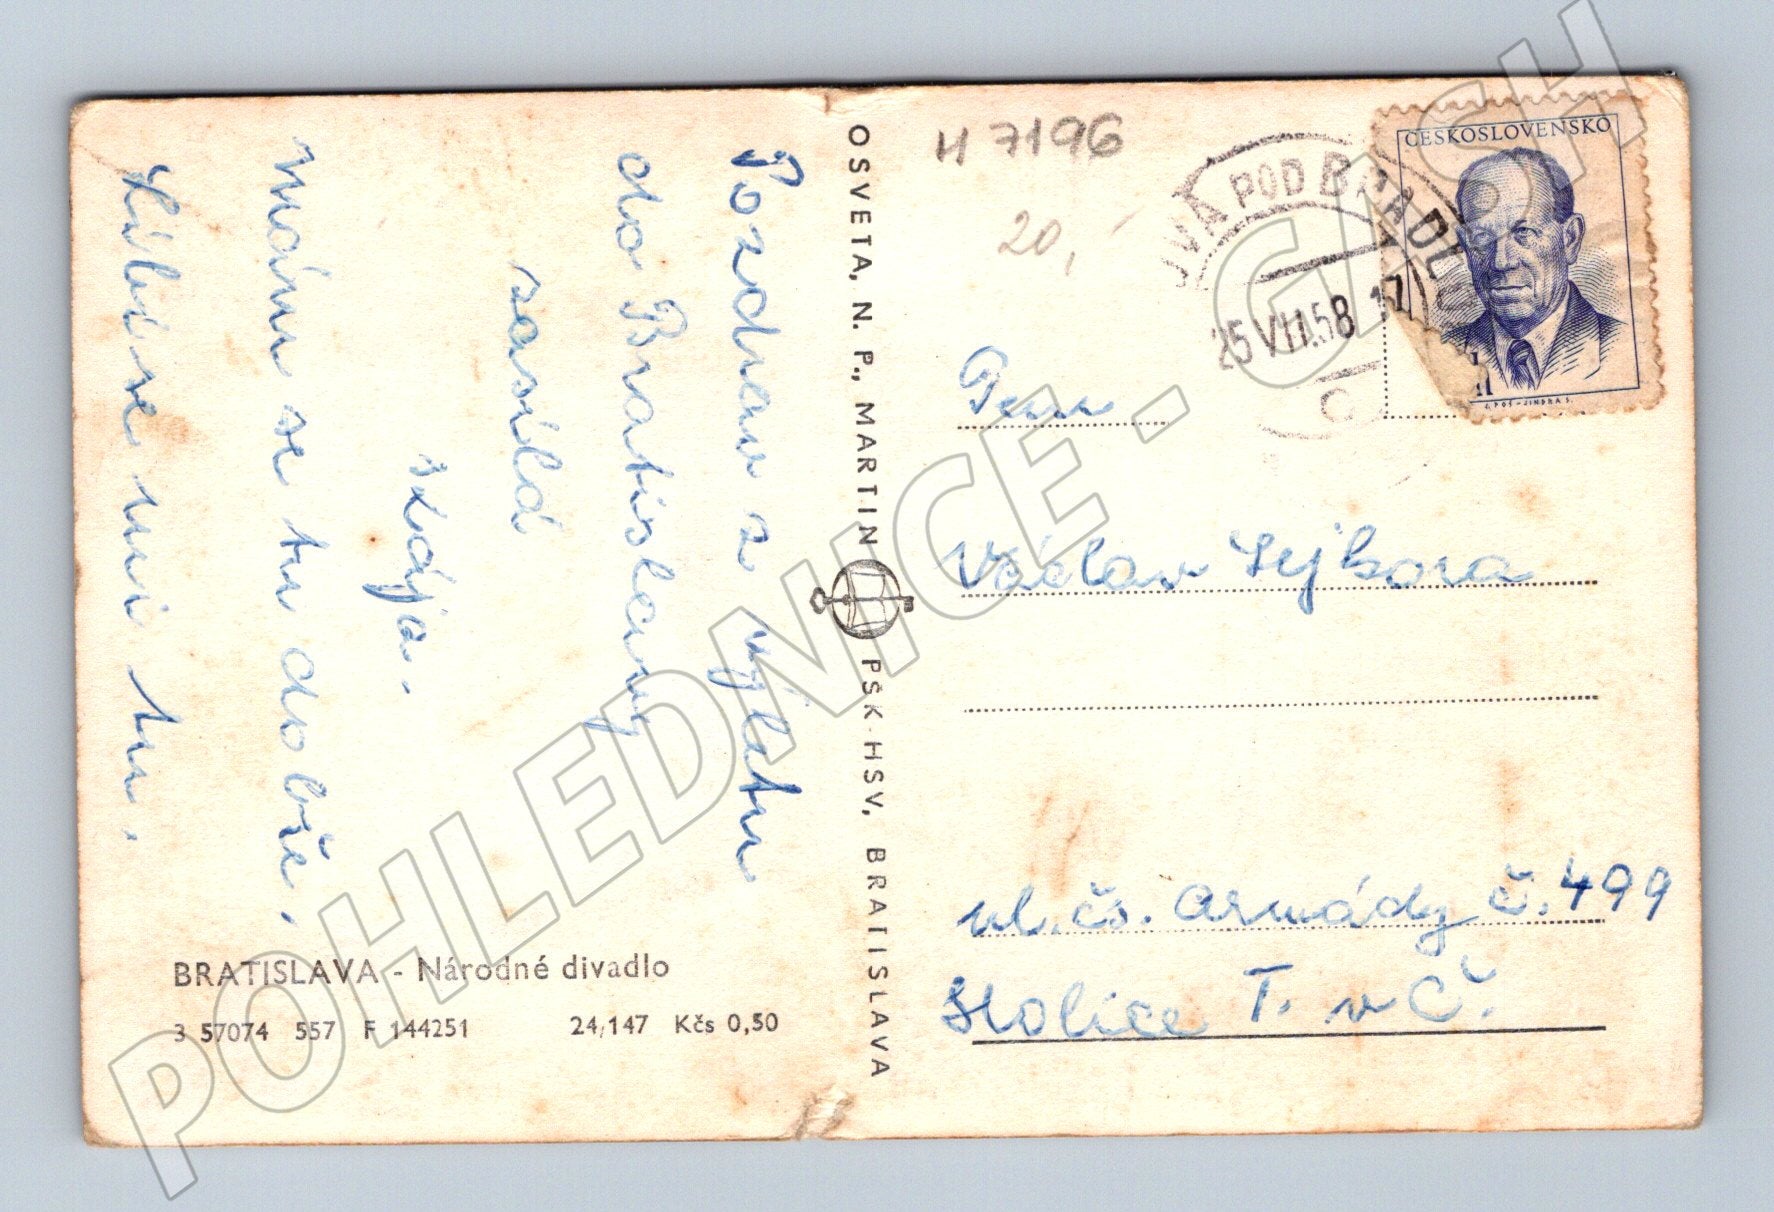 Pozdrav z výletu
do Bratislavy
zasílá
Mám se tu dobře,
Líbí se mi tu.
BRATISLAVA - Národné divadlo
3 57074 557 F 144251 24,147 Kčs 0,50
OSVETA, N. P., MARTIN
PSK-HSV, BRATISLAVA
H 7196
20,-
POD BRADLOM
25.VII.58
C
ČESKOSLOVENSKO
J. POŠ - JINDRA S.
Pan
Václav Sejkora
ul. čs. Armády č. 499
Holice v Č.
POHLEDNICE - GASH